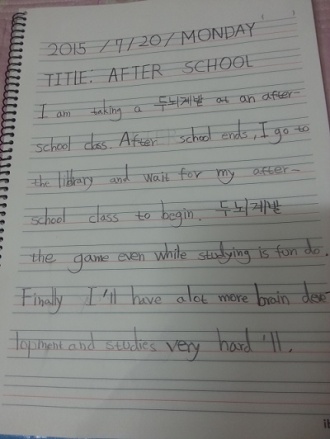 2015 / 7/20/ MONDAY
TITLE: AFTER SCHOOL
I am taking a 두뇌계발 at an after-
school class. After school ends, I go to
the library and wait for my after-
school class to begin. 두뇌계발
the game even while studying is fun do.
Finally I'll have alot more brain deve-
lopment and studies very hard 'll.